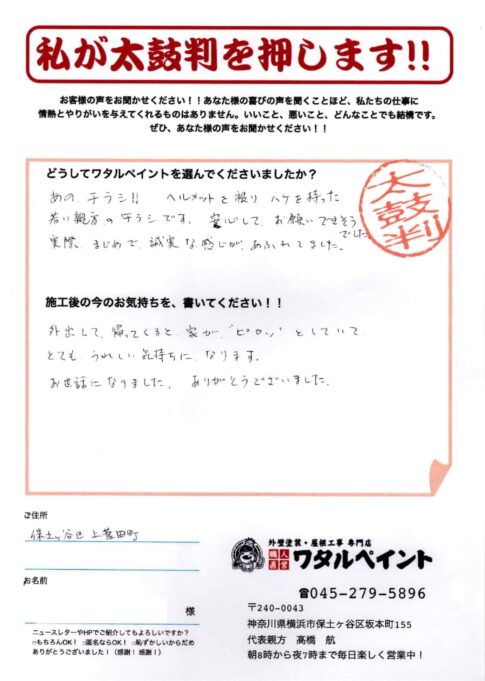 私が太鼓判を押します!!
お客様の声をお聞かせください！！あなた様の喜びの声を聞くことほど、私たちの仕事に
情熱とやりがいを与えてくれるものはありません。いいこと、悪いこと、どんなことでも結構です。
ぜひ、あなた様の声をお聞かせください！！
どうしてワタルペイントを選んでくださいましたか？
あの チラシ!! ヘルメットを被り ハケを持った
若い親方のチラシです。安心して お願いできそう
でした
実際、まじめで、誠実な感じが、あふれてました。
太鼓判
施工後の今のお気持ちを、書いてください！！
外出して、帰ってくると 家が、"ピカッ" としていて
とても うれしい気持ちに なります。
お世話になりました。 ありがとうございました。
ご住所
保土ヶ谷区 上菅田町
お名前
様
ニュースレターやHPでご紹介してもよろしいですか？
□もちろんOK！ □匿名ならOK！ □恥ずかしいからだめ
ありがとうございました！（感謝！感謝！）
外壁塗装・屋根工事 専門店
職人直営 ワタルペイント
☎045-279-5896
〒240-0043
神奈川県横浜市保土ヶ谷区坂本町155
代表親方 高橋 航
朝8時から夜7時まで毎日楽しく営業中！